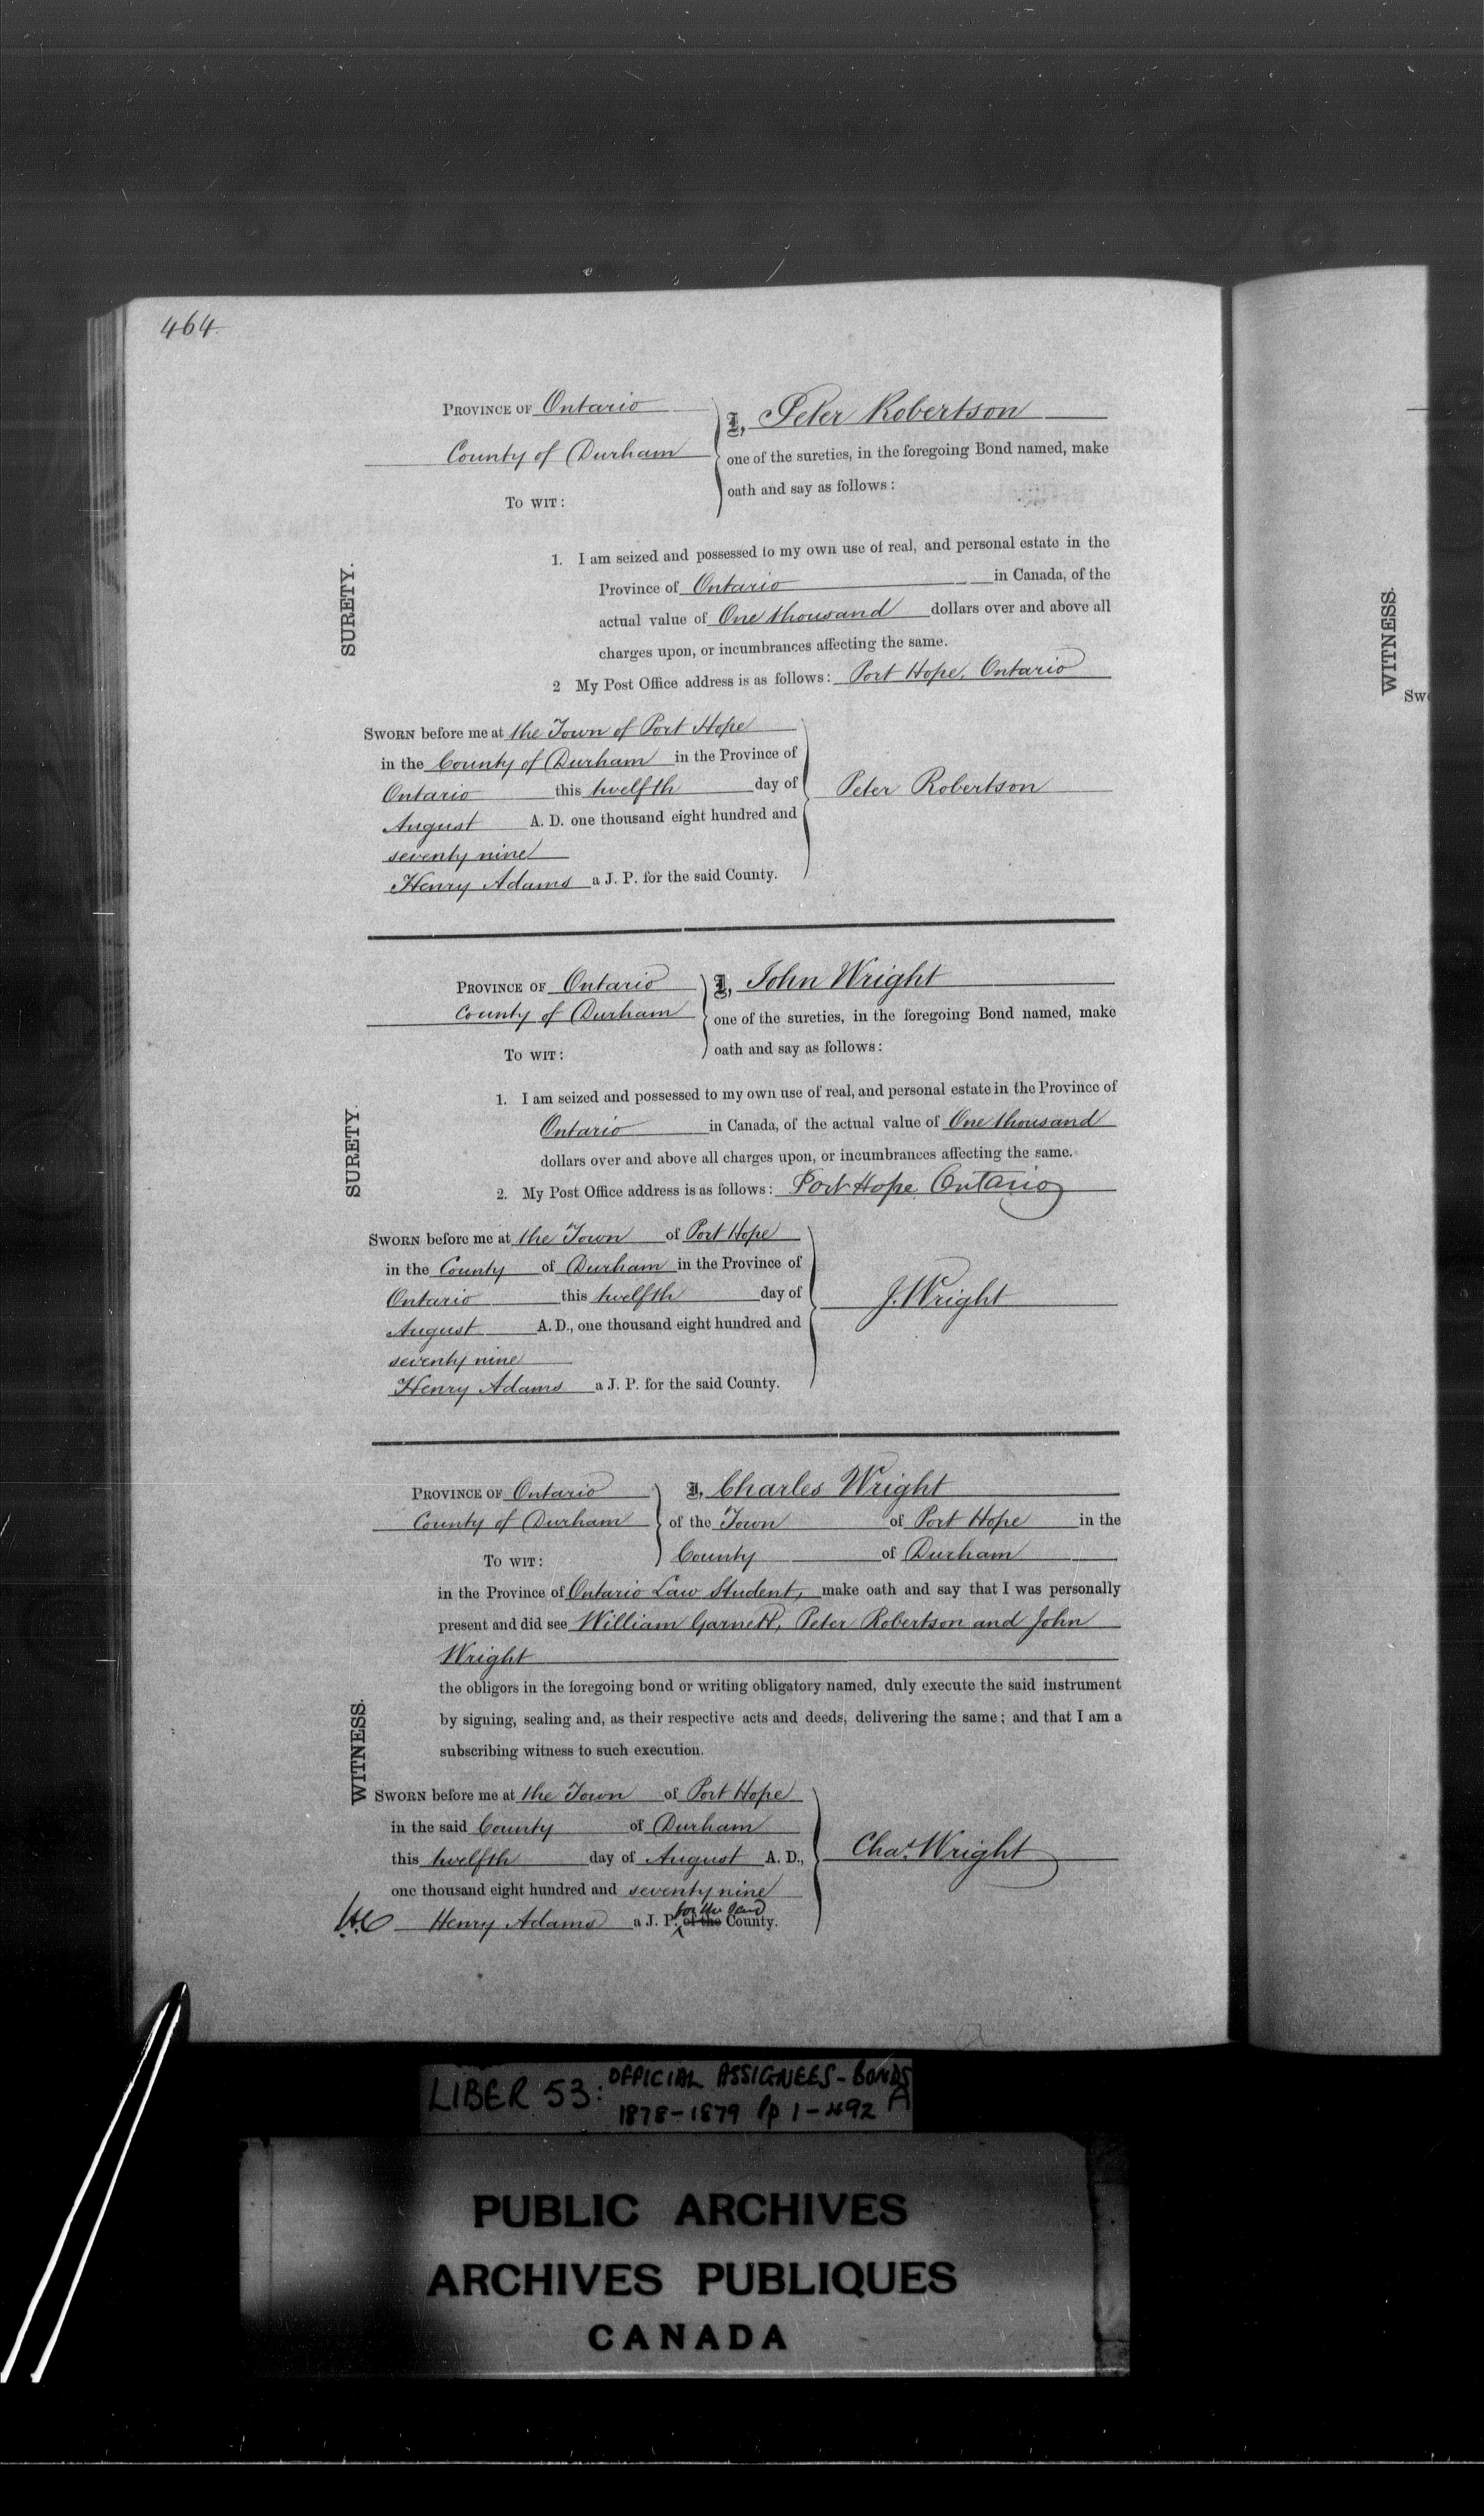 464.
PROVINCE OF Ontario
County of Durham
TO WIT:
I, Peter Robertson
one of the sureties, in the foregoing Bond named, make
oath and say as follows:
SURETY.
1. I am seized and possessed to my own use of real, and personal estate in the
Province of Ontario in Canada, of the
actual value of One thousand dollars over and above all
charges upon, or incumbrances affecting the same.
2 My Post Office address is as follows: Port Hope, Ontario
SWORN before me at the Town of Port Hope
in the County of Durham in the Province of
Ontario this twelfth day of
August A. D. one thousand eight hundred and
seventy nine
Henry Adams a J. P. for the said County.
Peter Robertson
PROVINCE OF Ontario
County of Durham
TO WIT:
I, John Wright
one of the sureties, in the foregoing Bond named, make
oath and say as follows:
SURETY.
1. I am seized and possessed to my own use of real, and personal estate in the Province of
Ontario in Canada, of the actual value of One thousand
dollars over and above all charges upon, or incumbrances affecting the same.
2. My Post Office address is as follows: Port Hope Ontario
SWORN before me at the Town of Port Hope
in the County of Durham in the Province of
Ontario this twelfth day of
August A. D., one thousand eight hundred and
seventy nine
Henry Adams a J. P. for the said County.
J. Wright
PROVINCE OF Ontario
County of Durham
TO WIT:
I, Charles Wright
of the Town of Port Hope in the
County of Durham
in the Province of Ontario Law Student, make oath and say that I was personally
present and did see William Garnett, Peter Robertson and John
Wright
the obligors in the foregoing bond or writing obligatory named, duly execute the said instrument
by signing, sealing and, as their respective acts and deeds, delivering the same; and that I am a
subscribing witness to such execution.
WITNESS.
SWORN before me at the Town of Port Hope
in the said County of Durham
this twelfth day of August A. D.,
one thousand eight hundred and seventy nine
for the said
Henry Adams a J. P. of the County.
Chas. Wright
WITNESS.
Sw
LIBER 53: OFFICIAL ASSIGNEES - BONDS
1878-1879 pp 1-492 A
PUBLIC ARCHIVES
ARCHIVES PUBLIQUES
CANADA